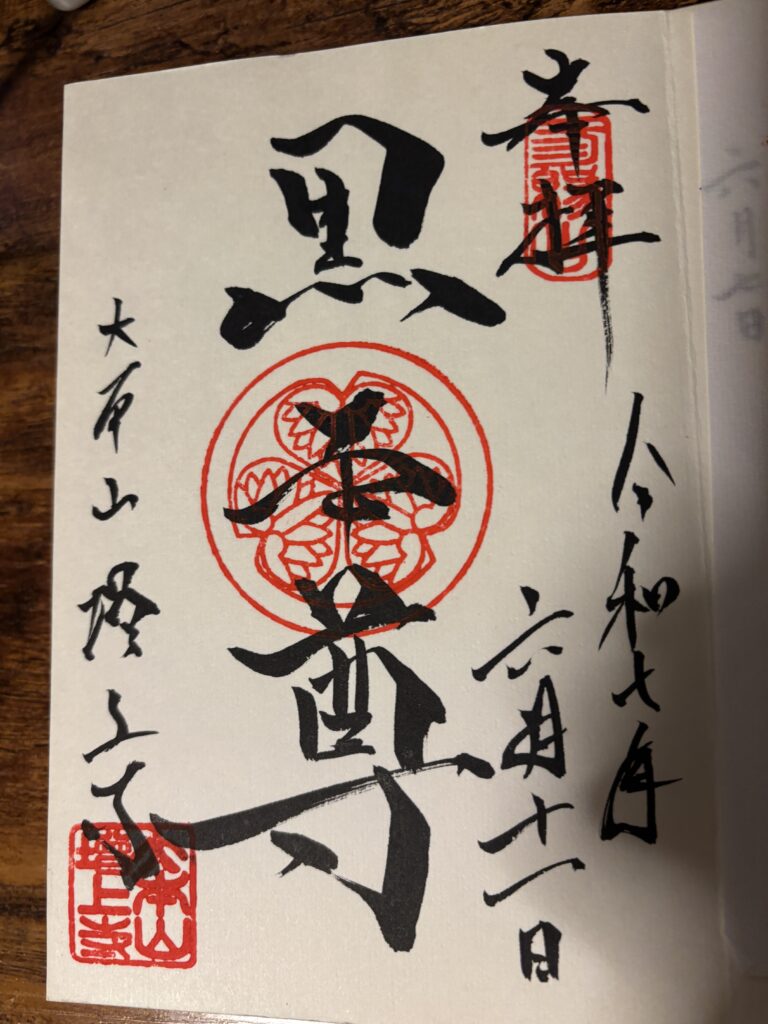 奉拝
令和七年
六月十一日
黒本尊
大本山増上寺
大本山
増上寺
六月七日